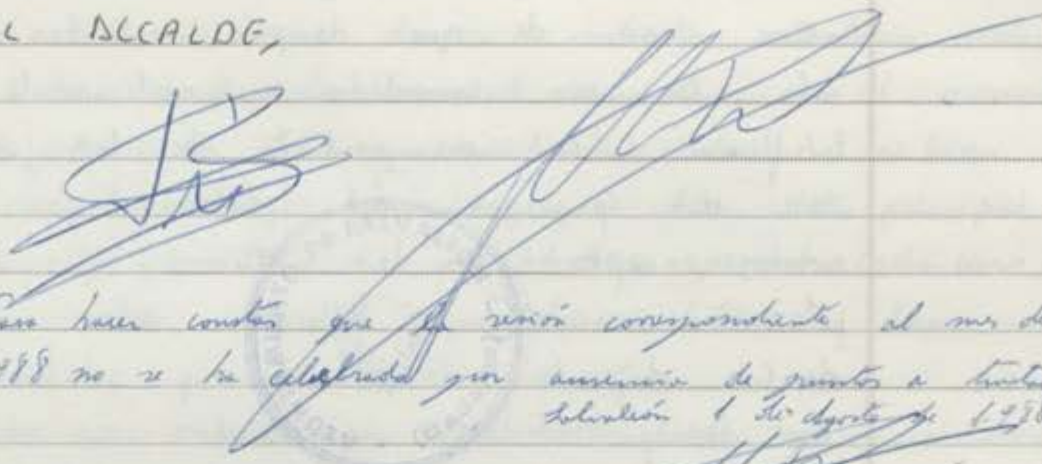 L ALCALDE,
Para hacer constar que la sesión correspondiente al mes de
1988 no se ha celebrado por ausencia de puntos a tratar
Salvaleón 1 de Agosto de 1.988